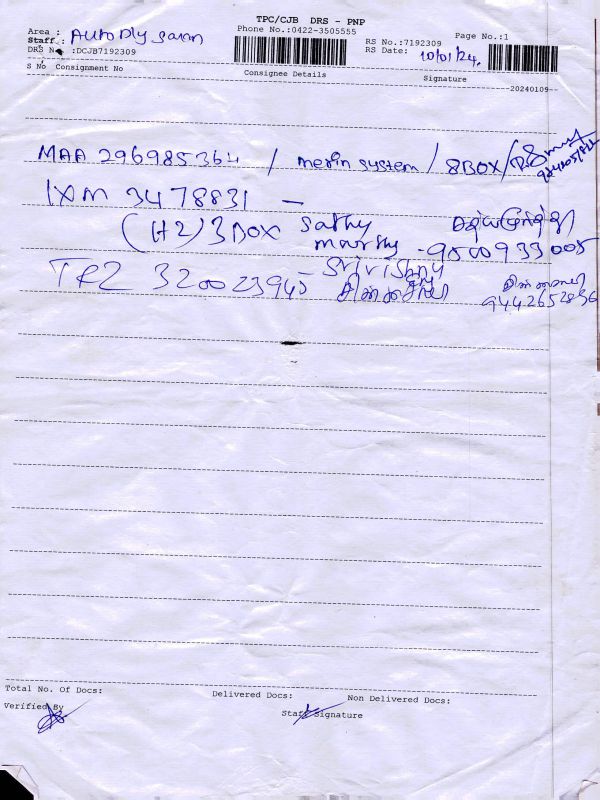 TPC/CJB DRS - PNP
Area : Auto Dly Saran
Phone No.:0422-3505555
Page No.:1
Staff :
RS No.:7192309
DRS No :DCJB7192309
RS Date: 10/01/24.
S No Consignment No
Consignee Details
Signature
20240109
MAA 296985364 / merin system / 8BOX /
IXM 3478831 -
(H2) 3 Box Sathy
murthy - 9500933005
TRZ 320023945 - Srivishnu
9442652836
Total No. Of Docs:
Delivered Docs:
Non Delivered Docs:
Verified By
Staff Signature